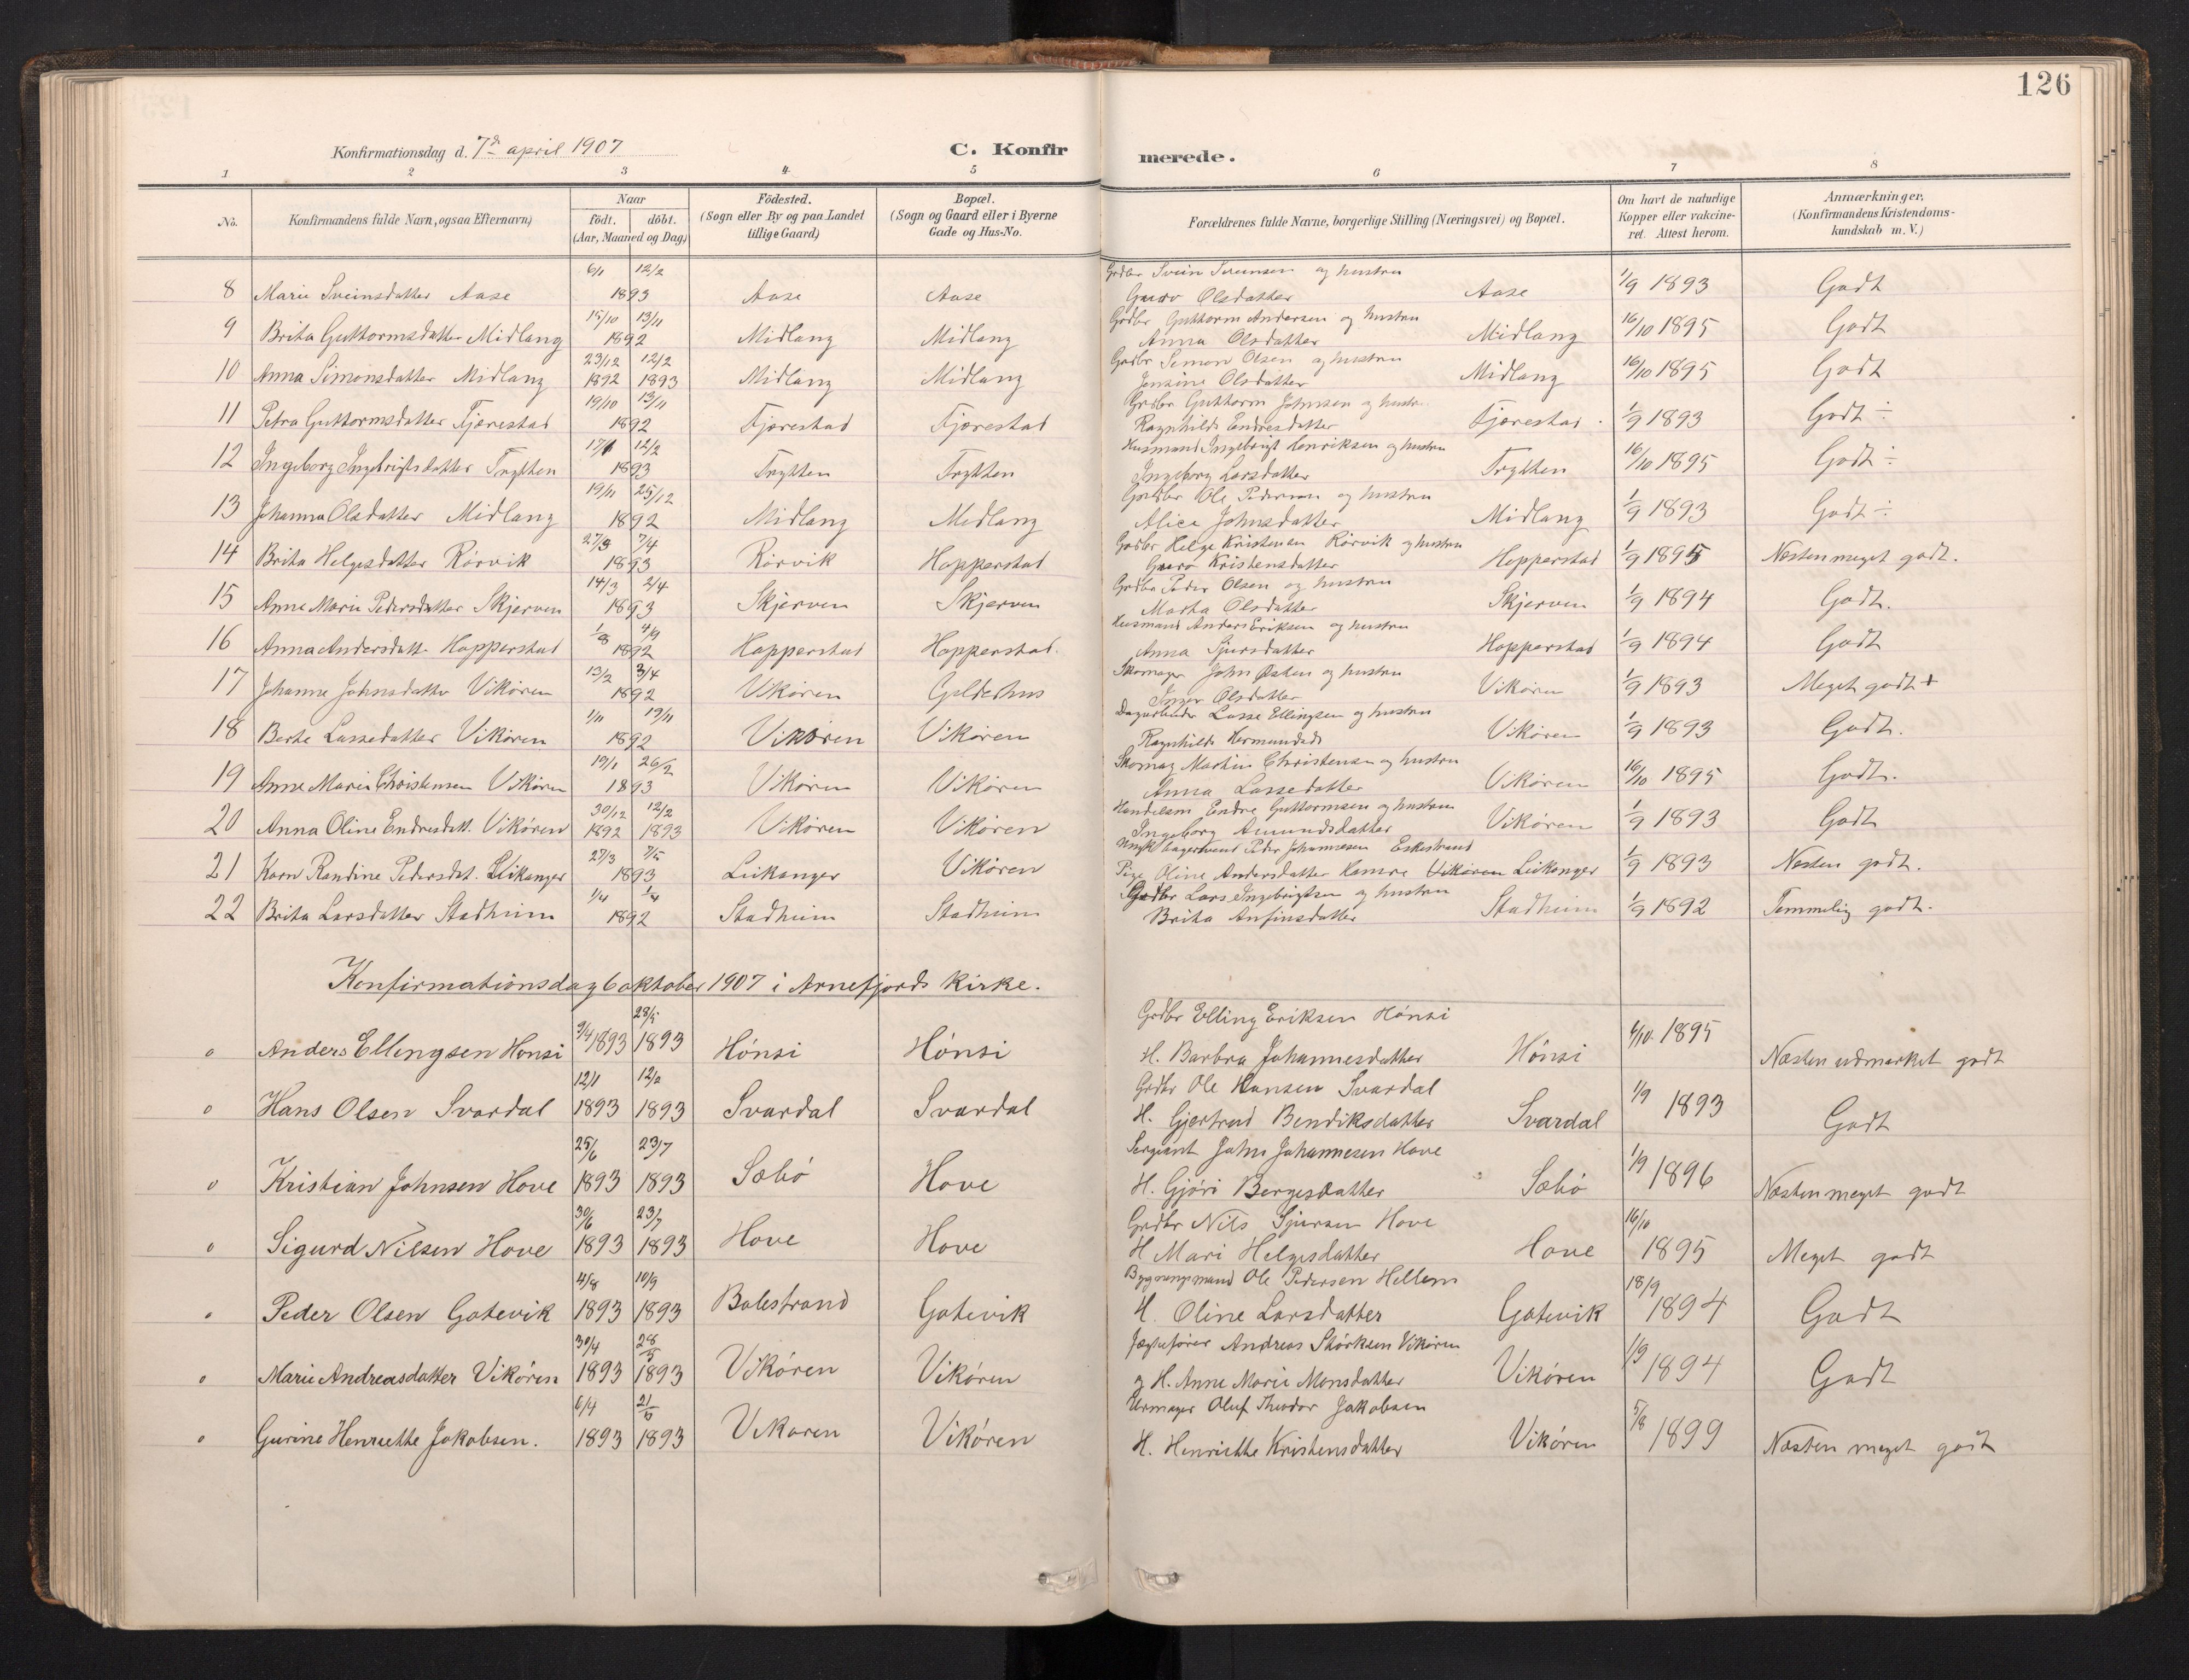 126
Konfirmationsdag d. 7de april 1907
C. Konfirmerede.
1 2 3 4 5 6 7 8
No.
Konfirmandens fulde Navn, ogsaa Efternavn)
Naar
födt. döbt.
(Aar, Maaned og Dag)
Födested.
(Sogn eller By og paa Landet
tillige Gaard)
Bopæl.
(Sogn og Gaard eller i Byerne
Gade og Hus-No.
Forældrenes fulde Navne, borgerlige Stilling (Næringsvei) og Bopæl.
Om havt de naturlige
Kopper eller vakcine-
ret. Attest herom.
Anmærkninger.
(Konfirmandens Kristendoms-
kundskab m. V.)
6/1 12/2 Grdbr Svein og hustru
8 Marie Sveinsdatter Aase 1893 Aase Aase Guro Olsdatter Aase 1/9 1893 Godt
15/10 13/11 Grdbr Guttorm Andersen og hustru
9 Brita Guttormsdatter Midlang 1892 Midlang Midlang Anna Olsdatter Midlang 16/10 1895 Godt
23/12 12/2 Grdbr Simon Olsen og hustru
10 Anna Simonsdatter Midlang 1892 1893 Midlang Midlang Jensine Olsdatter Midlang 16/10 1895 Godt
19/10 13/11 Grdbr Guttorm Johnsen og hustru
11 Petra Guttormsdatter Fjærestad 1892 Fjærestad Fjærestad Ragnhild Endresdatter Fjærestad 1/9 1893 Godt ÷
17/1 12/2 Husmand Ingebrigt Henriksen og hustru
12 Ingeborg Ingebrigtsdatter Trytten 1893 Trytten Trytten Ingeborg Larsdatter Trytten 16/10 1895 Godt ÷
19/11 25/12 Grdbr Ole Pedersen og hustru
13 Johanna Olsdatter Midlang 1892 Midlang Midlang Alice Johnsdatter Midlang 1/9 1893 Godt ÷
27/3 7/4 Grdbr Helge Kristensen Rörvik og hustru
14 Brita Helgesdatter Rörvik 1893 Rörvik Hopperstad Guro Kristensdatter Hopperstad 1/9 1895 Næsten meget godt.
14/3 2/4 Grdbr Peder Olsen og hustru
15 Anne Marie Pedersdatter Skjerven 1893 Skjerven Skjerven Marta Olsdatter Skjerven 1/9 1894 Godt.
1/8 4/9 Husmand Anders Eriksen og hustru
16 Anna Andersdatt. Hopperstad 1892 Hopperstad Hopperstad. Anna Sjursdatter Hopperstad 1/9 1894 Godt
13/2 3/4 Skomager John Östen og hustru
17 Johanne Johnsdatter Vikören 1892 Vikören Gyldehus Inger Olsdatter Vikören 1/9 1893 Meget godt +
1/11 19/11 Dagarbeider Lasse Ellingsen og hustru
18 Berte Lassedatter Vikören 1892 Vikören Vikören Ragnhild Hermundsd Vikören 1/9 1893 Godt.
19/1 26/2 Skomag Martin Christensen og hustru
19 Anne Marie Christensen Vikören 1893 Vikören Vikören Anna Lassedatter Vikören 16/10 1895 Godt.
30/12 12/2 Handelsm Endre Guttormsen og hustru
20 Anna Oline Endresdatt. Vikören 1892 1893 Vikören Vikören Ingeborg Amundsdatter Vikören 1/9 1893 Godt
27/3 7/5 Ungk bagersvend Peder Johannesen Eskestrand
21 Karn Randine Pedersdat. Leikanger 1893 Leikanger Vikören Pige Oline Andersdatter Hamre Vikören Leikanger 1/9 1893 Næsten godt.
1/4 1/4 Grdbr Lars Ingebrigtsen og hustru
22 Brita Larsdatter Stadheim 1892 Stadheim Stadheim Brita Anfinsdatter Stadheim 1/9 1892 Temmelig godt.
Konfirmationsdag 6 oktober 1907 i Arnefjords Kirke.
28/5 Grdbr Elling Eriksen Hönsi
o Anders Ellingsen Hönsi 9/4 1893 1893 Hönsi Hönsi H. Barbra Johannesdatter Hönsi 6/10 1895 Næsten udmærket godt
12/1 12/2 Grdbr Ole Hansen Svardal
o Hans Olsen Svardal 1893 1893 Svardal Svardal H. Gjertrud Bendiksdatter Svardal 1/9 1893 Godt
25/6 23/7 Sergeant John Johannesen Hove
o Kristian Johnsen Hove 1893 1893 Sæbö Hove H. Gjöri Bergesdatter Sæbö 1/9 1896 Næsten meget godt
30/6 23/7 Grdbr Nils Sjursen Hove
o Sigurd Nilsen Hove 1893 1893 Hove Hove H Mari Helgesdatter Hove 16/10 1895 Meget godt
4/8 10/9 Bygningsmand Ole Pedersen Hellem
o Peder Olsen Gatevik 1893 1893 Balestrand Gatevik H. Oline Larsdatter Gatevik 18/9 1894 Godt
30/4 28/5 Jægtefører Andreas Störksen Vikören
o Marie Andreasdatter Vikören 1893 1893 Vikören Vikören og H. Anne Marie Monsdatter Vikören 1/9 1894 Godt
6/4 21/5 Urmager Oluf Theodor Jakobsen
o Gurine Henriette Jakobsen. 1893 1893 Vikören Vikören H. Henriette Kristensdatter Vikören 5/8 1899 Næsten meget godt